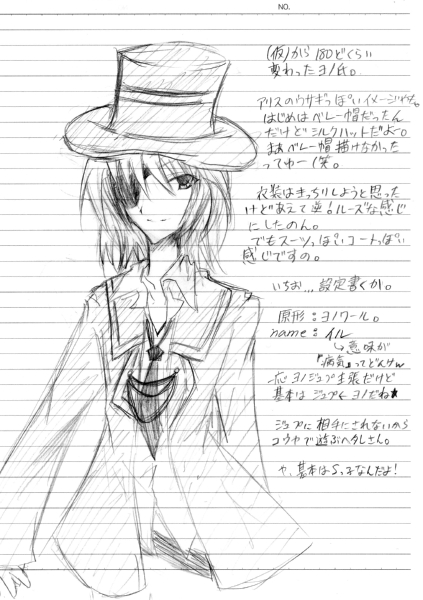 NO.
(仮)から180どくらい
変わったヨノ氏。
アリスのウサギっぽいイメージやな。
はじめはベレー帽だったん
だけどシルクハットだよー。
まぁベレー帽描けなかった
ってゆー(笑。
衣装はきっちりしようと思った
けどあえて逆!ルーズな感じ
にしたのん。
でもスーツっぽいコートっぽい
感じですの。
いちお...設定書くか。
原形:ヨノワール。
name:イル
↳意味が
『病気』ってどんけw
一応ヨノジュプ主張だけど
基本はジュプ←ヨノだね★
ジュプに相手にされないから
コウヤで遊ぶヘタレさん。
や、基本はSっ子なんだよ!